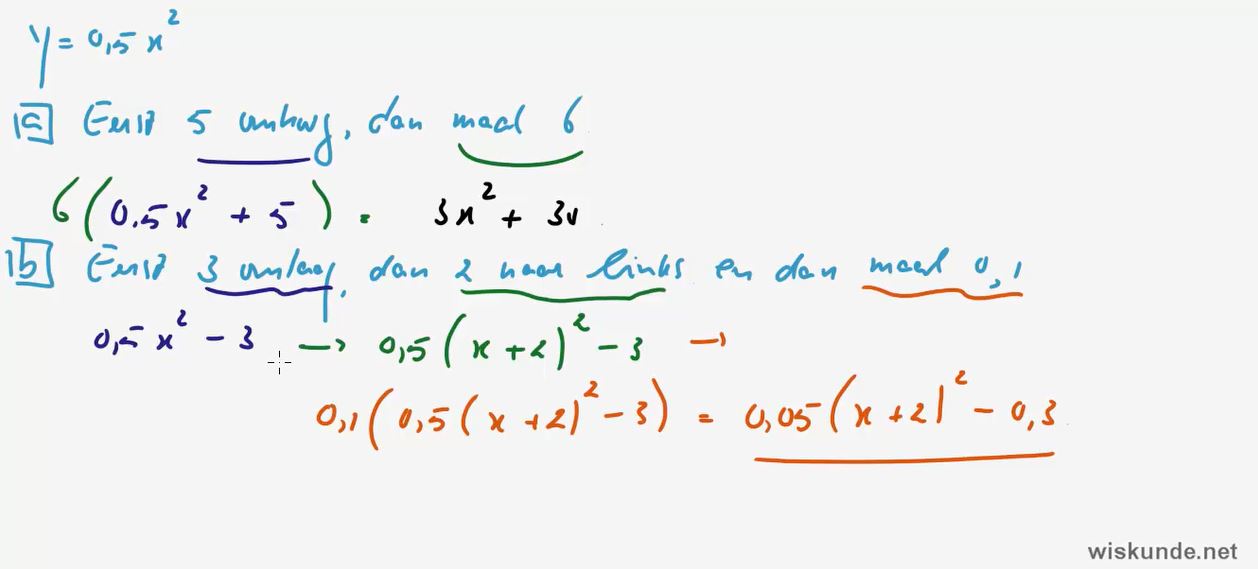 y = 0,5 x²
1a Eerst 5 omhoog, dan maal 6
6(0.5x² + 5) = 3x² + 30
1b Eerst 3 omlaag, dan 2 naar links en dan maal 0,1
0,5 x² - 3 → 0,5(x + 2)² - 3 →
0,1(0,5(x + 2)² - 3) = 0,05(x + 2)² - 0,3
wiskunde.net